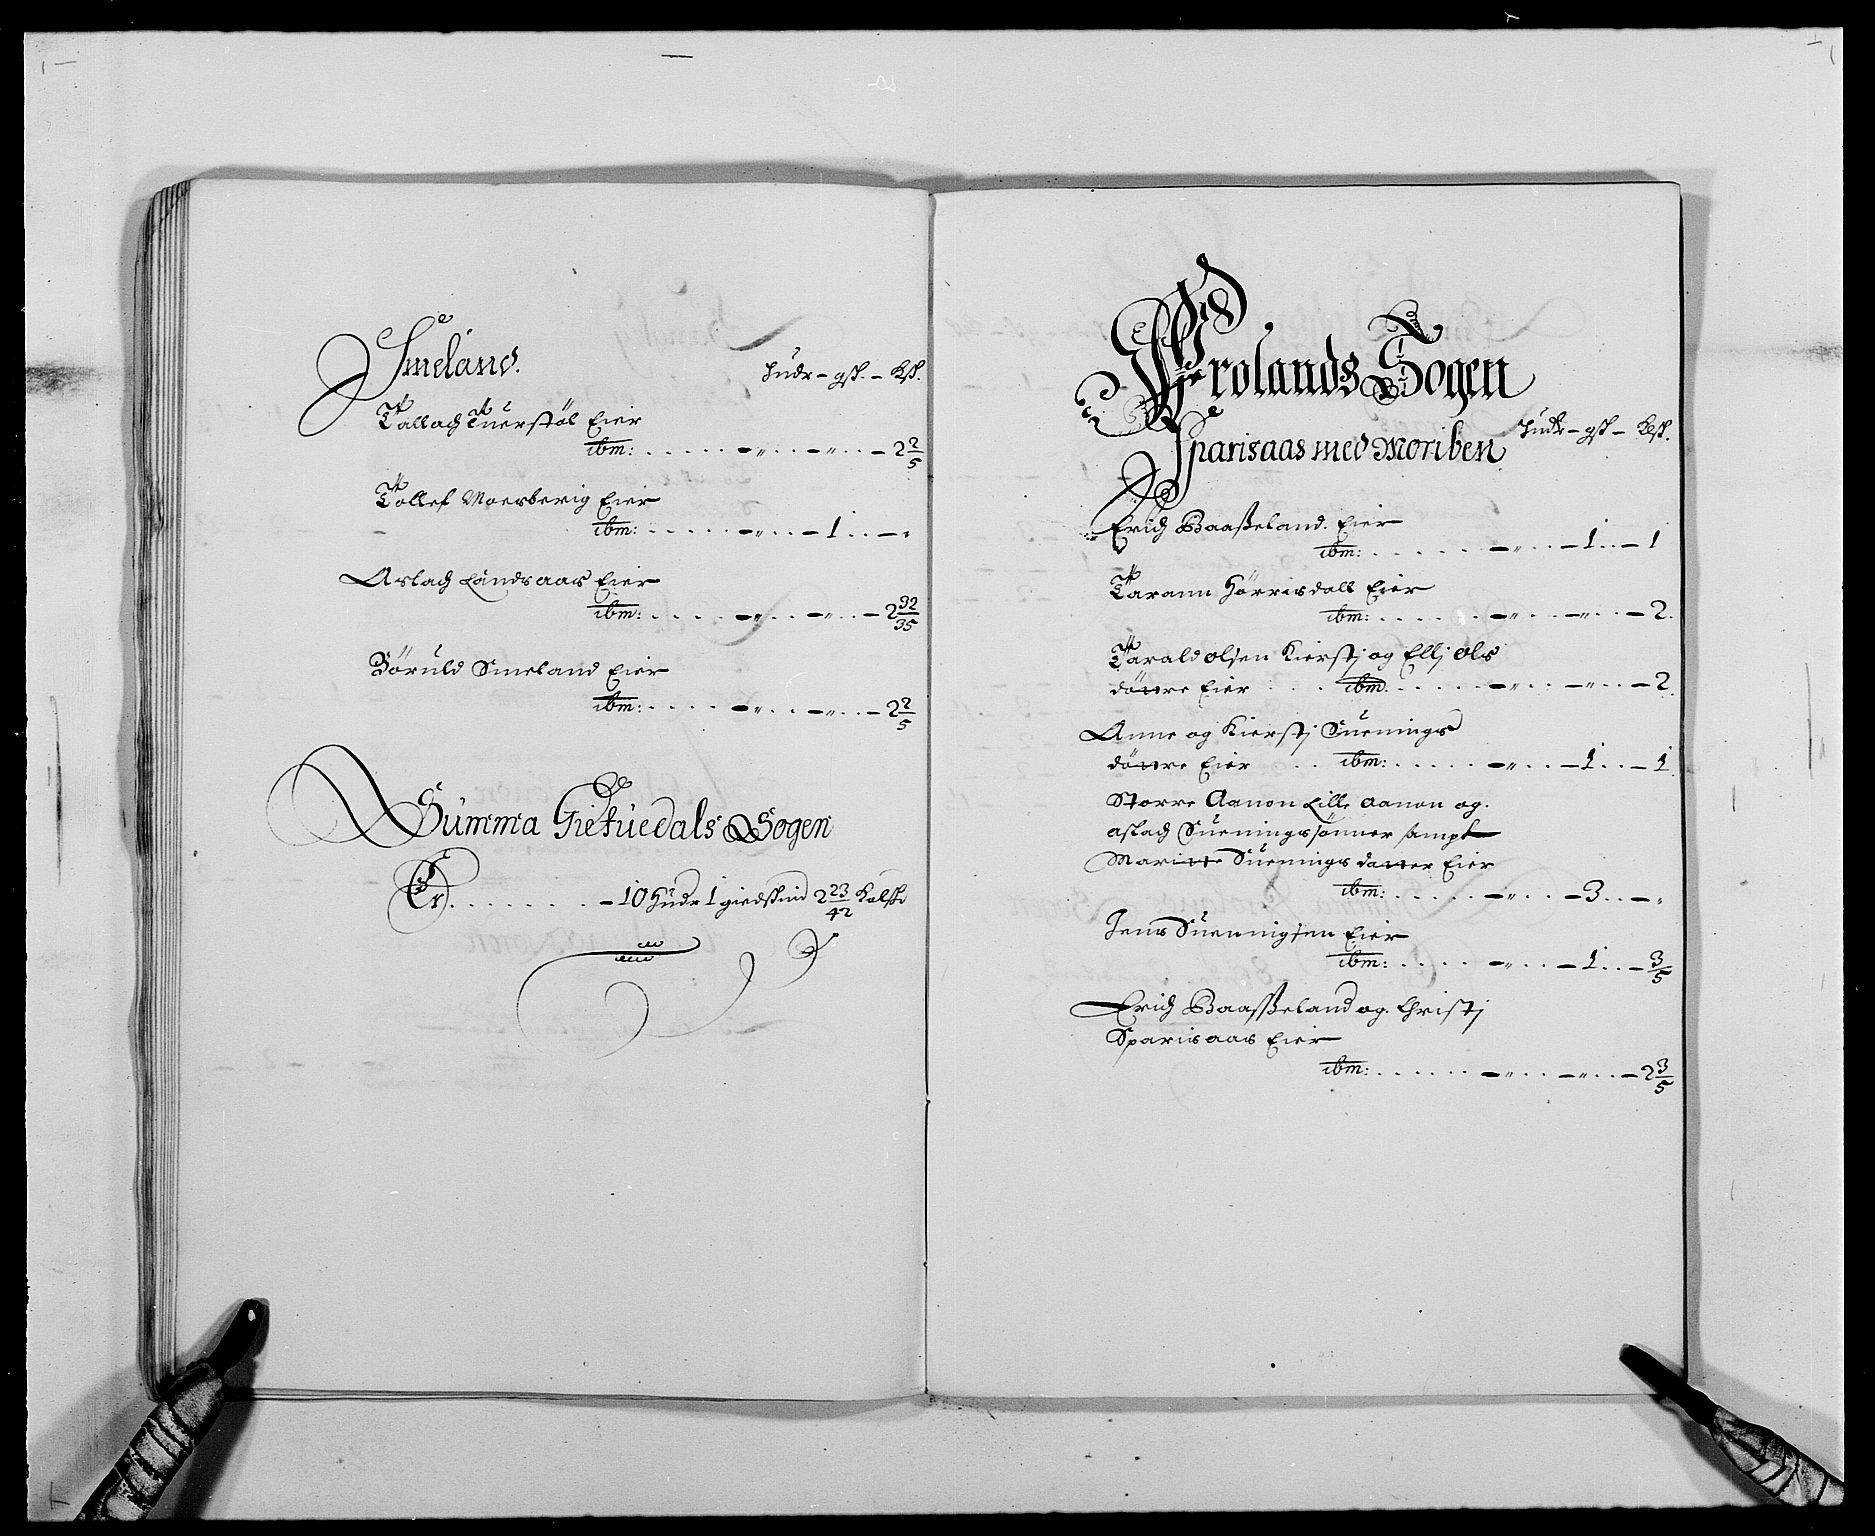 Smeland.
Hudr - gsk. - Ksk.
Tallach Tuerstøl Eier
ibm: . . . . . - „ . . - „ . . - 2 2/5
Tollef Moesberig Eier
ibm: . . . . . - „ . . - 1 . . - „
Aslach Landsaas Eier
ibm: . . . . . - „ . . - „ . . - 2 32/35
Børuld Smeland Eier
ibm: . . . . . - „ . . - „ . . - 2 2/5
Summa Giefuedals Sogen
Er . . . . . . . - 10 Hudr 1 giedskind 2 23/42 Kalfsk:
Frolands Sogen
Hudr - gsk - Kalfsk.
Sparisaas med Moriben
Erich Baaseland Eier
ibm: . . . . . . - „ . . - 1 . . - 1
Tarann Hørrisdall Eier
ibm: . . . . . . - „ . . - „ . . - 2.
Tarald Olsen Kierstj og Ellj Ols
døttre Eier . . . ibm. . . . . . - „ . . - „ . . - 2.
Anne og Kierstj Suenings
døttre Eier . . ibm: . . . . . - „ . . - 1 . . - 1.
Storre Aanon Lille Aanon og.
aslach Sueningssønner sampt
Maritte Suenings datter Eier
ibm: . . . . . - „ . . - 3 . . - „
Jens Sueningsen Eier
ibm: . . . . . - „ . . - 1 . . - 3/5
Erich Baasseland og Christj
Sparisaas Eier
ibm: . . . . . . - „ . . - „ . . - 2 3/5